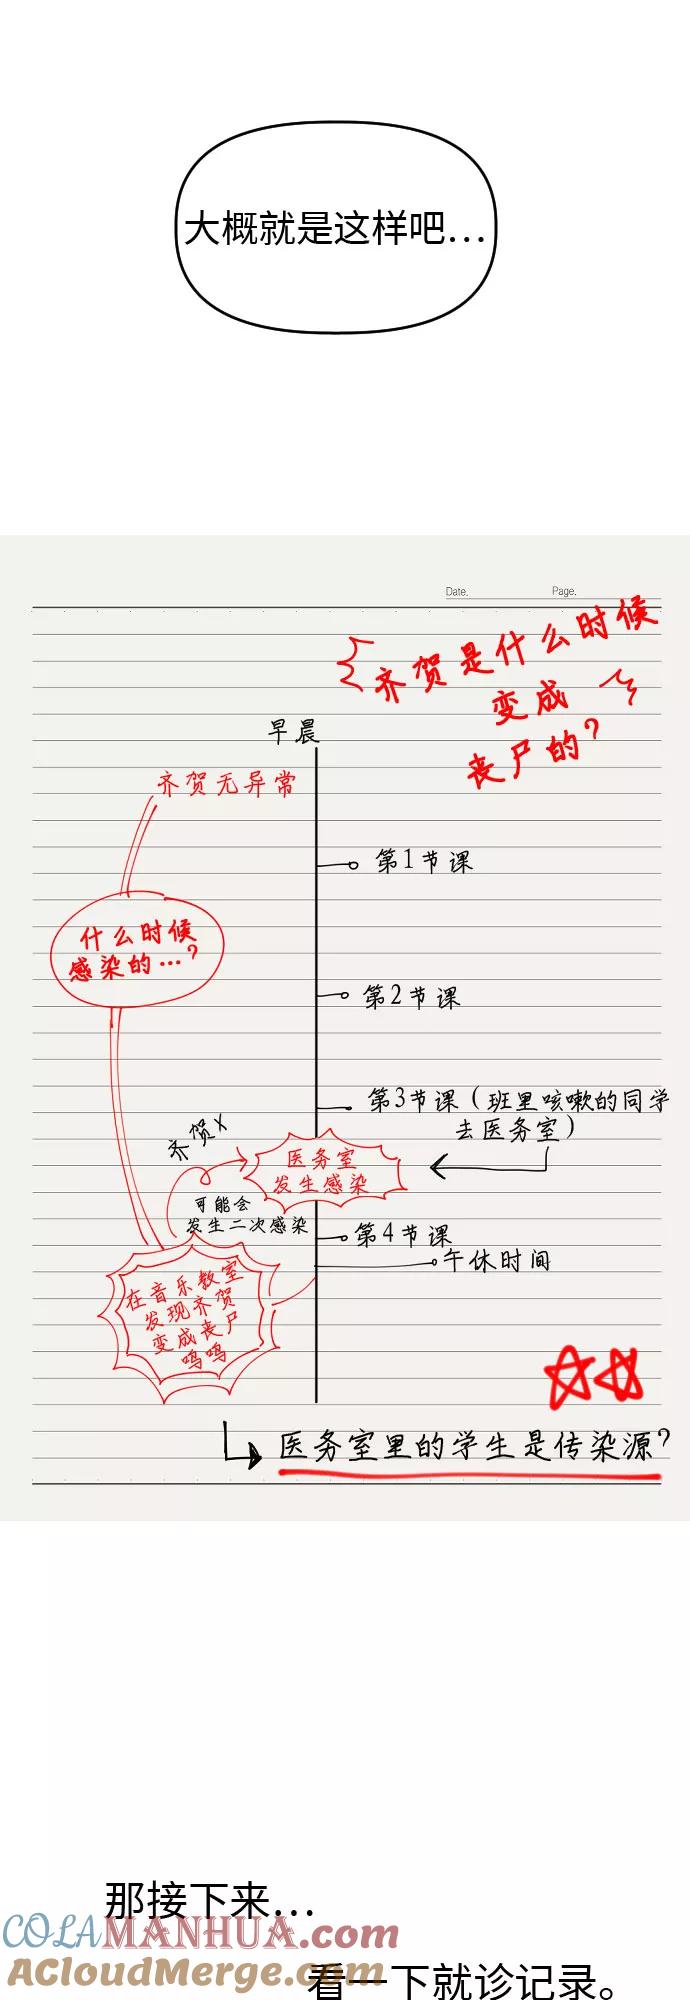 大概就是这样吧...
Date.
Page.
齐贺是什么时候
变成
丧尸的?
早晨
齐贺无异常
第1节课
什么时候
感染的...?
第2节课
第3节课(班里咳嗽的同学
去医务室)
齐贺X
医务室
发生感染
可能会
发生二次感染
第4节课
午休时间
在音乐教室
发现齐贺
变成丧尸
呜呜
医务室里的学生是传染源?
那接下来...
COLAMANHUA.com
ACloudMerge.com
看一下就诊记录。